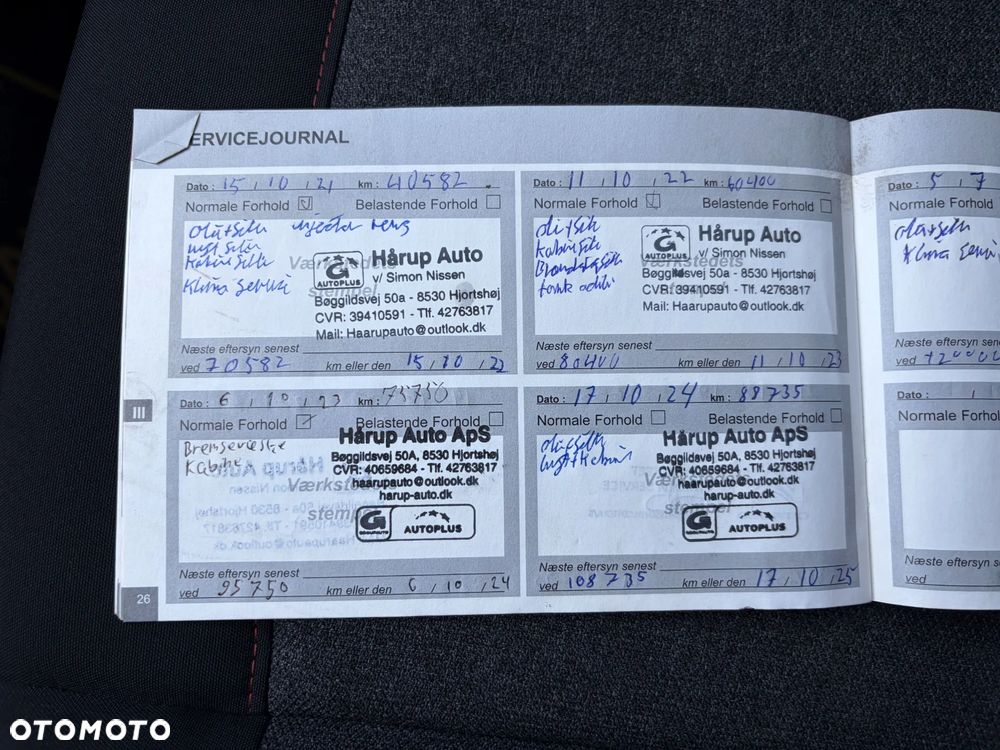 ERVICEJOURNAL
Dato : 15 / 10 / 21 km : 40582
Normale Forhold Belastende Forhold
Olie+filter injector rens
luft filter
Kabine filter
Klima service
Værkstedets
stempel
G
AUTOPLUS
Hårup Auto
v/ Simon Nissen
Bøggildsvej 50a - 8530 Hjortshøj
CVR: 39410591 - Tlf. 42763817
Mail: Haarupauto@outlook.dk
Næste eftersyn senest
ved 70582 km eller den 15 / 10 / 22
Dato : 11 / 10 / 22 km : 60400
Normale Forhold Belastende Forhold
Værkstedets
G
AUTOPLUS
Hårup Auto
v/ Simon Nissen
Bøggildsvej 50a - 8530 Hjortshøj
CVR: 39410591 - Tlf. 42763817
Mail: Haarupauto@outlook.dk
Næste eftersyn senest
ved 80400 km eller den 11 / 10 / 23
Dato : 5 / 7
Normale Forhold
Klima
Næste eftersyn senest
ved +20000
III
Dato : 6 / 10 / 23 km : 75750
Normale Forhold Belastende Forhold
Bremsevæske
Kabine
Værkstedets
stempel
Hårup Auto ApS
Bøggildsvej 50A, 8530 Hjortshøj
CVR: 40659684 - Tlf. 42763817
haarupauto@outlook.dk
harup-auto.dk
G AUTOPLUS
Næste eftersyn senest
ved 95750 km eller den 6 / 10 / 24
Dato : 17 / 10 / 24 km : 88735
Normale Forhold Belastende Forhold
Værkstedets
stempel
Hårup Auto ApS
Bøggildsvej 50A, 8530 Hjortshøj
CVR: 40659684 - Tlf. 42763817
haarupauto@outlook.dk
harup-auto.dk
G AUTOPLUS
Næste eftersyn senest
ved 108735 km eller den 17 / 10 / 25
Dato :
Normale Forhold
Næste eftersyn senest
ved
26
OTOMOTO